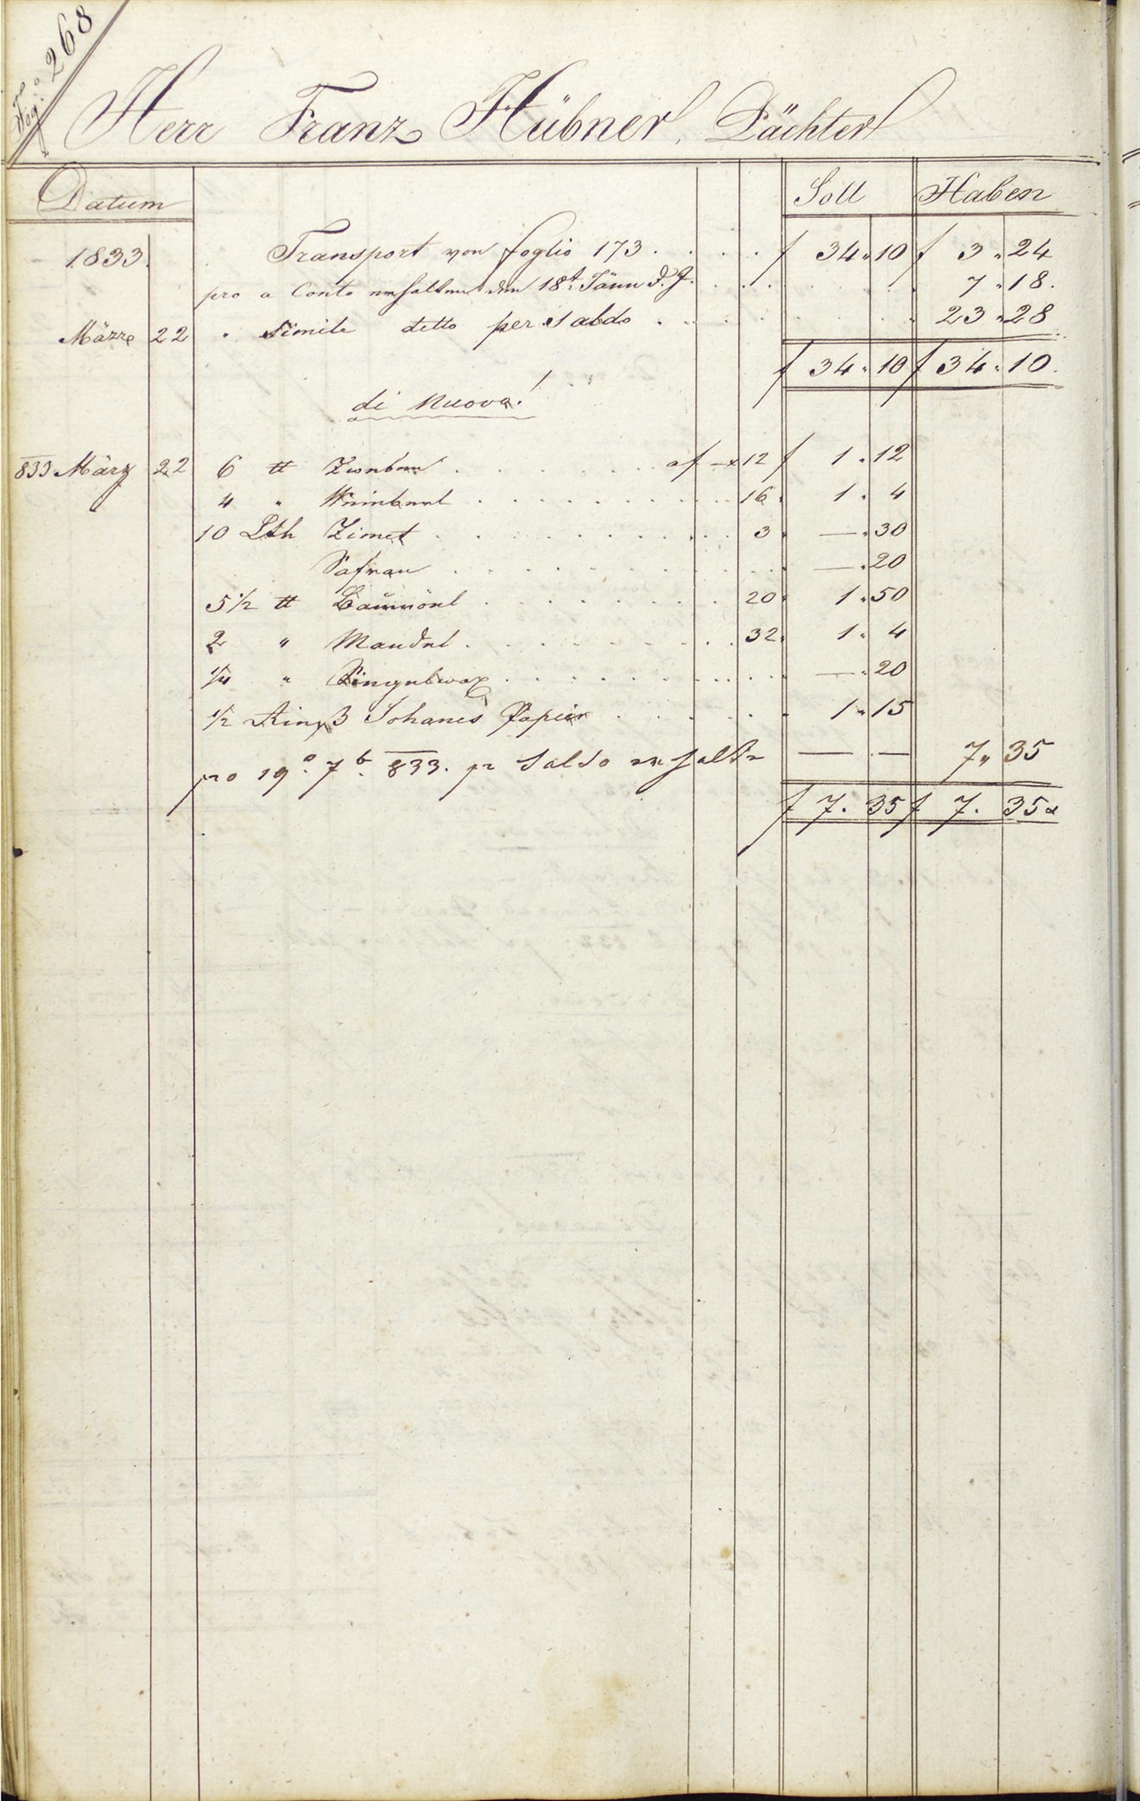 Fog: 268
Herr Franz Hübner, Pächter
Datum Soll Haben
1833. Transport von foglio 173 . . . . f 34 " 10 f 3 " 24
pro a Conto erhalten den 18t Jänn d. J. . . . 7 " 18.
März 22 " Simile detto per Saldo . . . 23 " 28
f 34 " 10 f 34 " 10.
di nuovo!
833 März 22 6 ℔ Zweben . . . . . af — x 12 f 1 " 12
4 " Weinberl . . . . . 16 1 " 4
10 Lth Zimet . . . . . 3 — " 30
Safran . . . . . — " 20
5 1/2 ℔ Baumönl . . . . . 20 1 " 50
2 " Mandel . . . . . 32 1 " 4
1/4 " . . . . . — " 20
1/2 Rieß Johanes Papier . . . . . 1 " 15
pro 19o 7b. 833. pr Saldo erhalten — " — 7 " 35
f 7. 35 f 7. 35